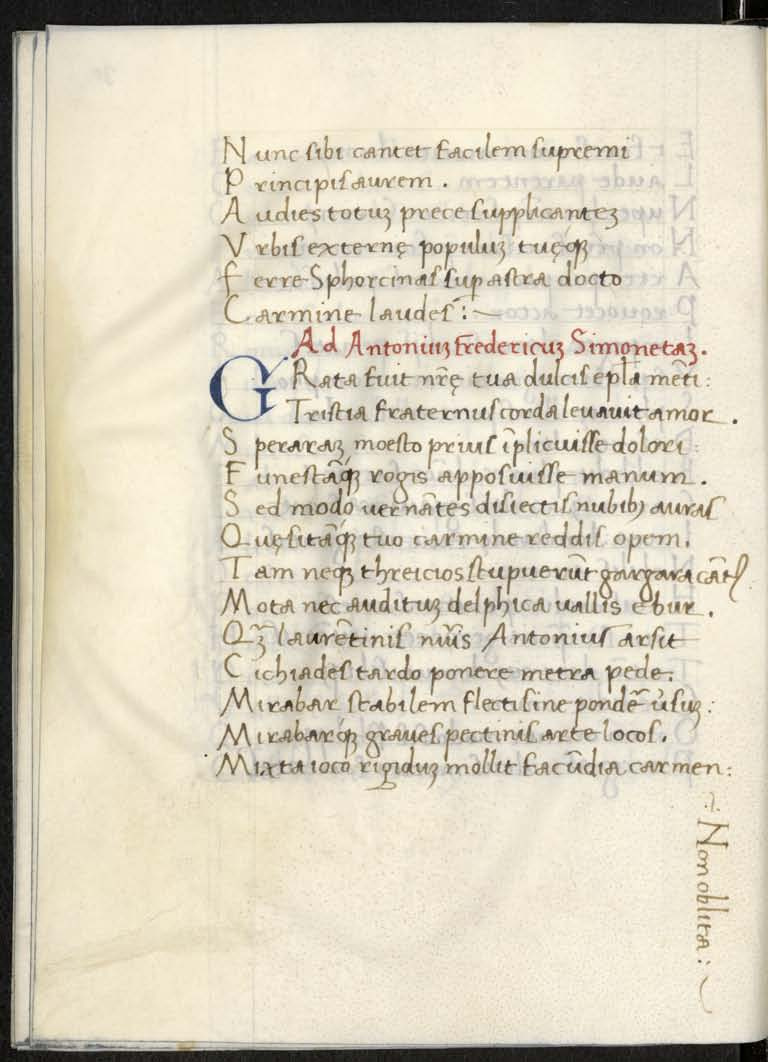 Nunc sibi cantet facilem supremi
Principis aurem .
Audies totuꝫ prece supplicanteꝫ
Vrbis externę populuꝫ tuęqꝫ
Ferre Sphorcinas sup astra docto
Carmine laudes :~
Ad Antoniuꝫ Fredericuꝫ Simonetaꝫ.
GRata fuit nr̄ę tua dulcis epl̄a mēti :
Tristia fraternus corda leuauit amor .
Speraraꝫ moesto prius īplicuisse dolori :
Funestāqꝫ rogis apposuisse manum .
Sed modo uernātes disiectis nubibꝫ auras
Quęsitāqꝫ tuo carmine reddis opem .
Tam neqꝫ threicios stupuerūt gargara cāt
Mota nec audituꝫ delphica uallis ebur .
Qꝫ laurētinis Antonius arsit
Cichiades tardo ponere metra pede .
Mirabar stabilem flecti sine pondē usuꝫ :
Mirabarqꝫ graues pectinis arte locos .
Mixta ioco rigiduꝫ mollit facūdia carmen :
Non oblita :